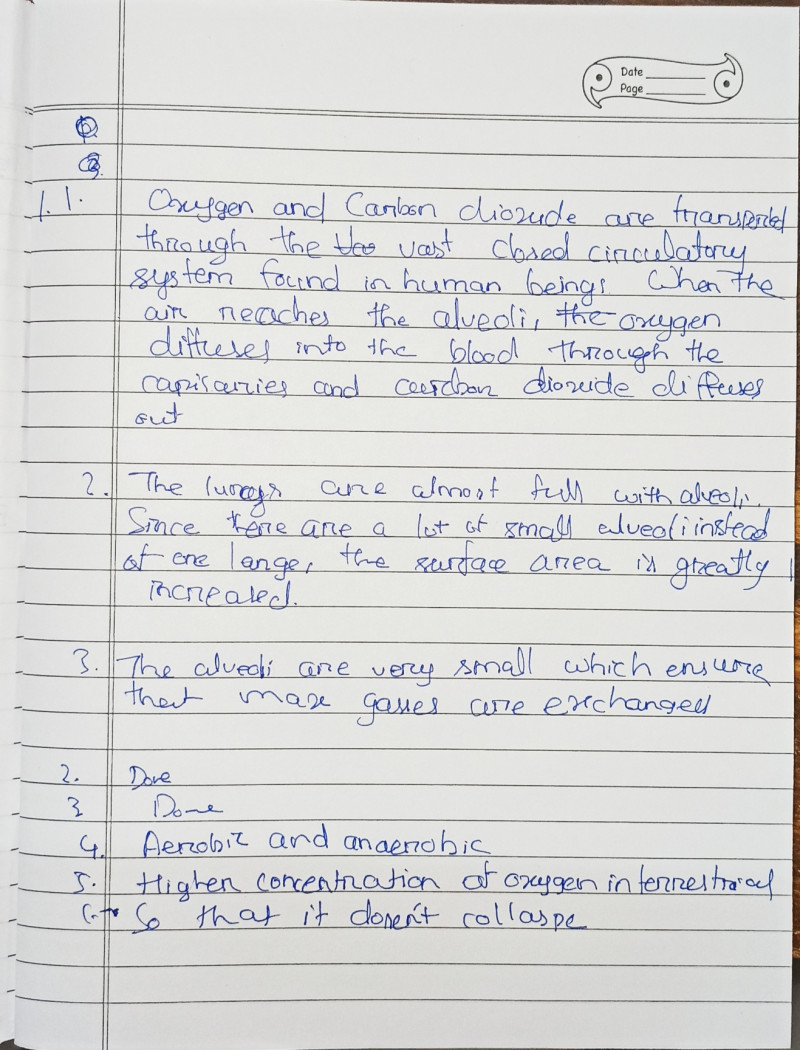 Date
Page
Q
Q.
1. 1. Oxygen and Carbon dioxide are transported
through the vast closed circulatory
system found in human beings. When the
air reaches the alveoli, the oxygen
diffuses into the blood through the
capisaries and carbon dioxide diffuses
out
2. The lungs are almost full with alveoli.
Since there are a lot of small alveoli instead
of one large, the surface area is greatly
increased.
3. The alveoli are very small which ensure
that max gasses are exchanged
2. Done
3 Done
4. Aerobic and anaerobic
5. Higher concentration of oxygen in terrestrial
6. So that it doesn't collaspe